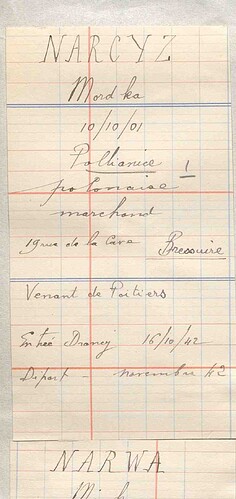 NARCYZ
Mordka
10/10/01
Polhanice !
polonaise
marchand
19 rue de la Cave Bressuire
Venant de Poitiers
Entrée Drancy 16/10/42
Départ - novembre 42
NARWA